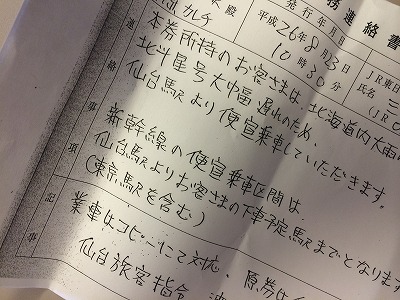 務連絡書
発行年月
殿
カレチ
平成26年8月23日
10時30分
JR東日
氏名
(JR
連絡事項
本券所持のお客さまは、北海道内大雨の
北斗星号大巾遅れのため、
仙台駅より便宜乗車していただきます。
新幹線の便宜乗車区間は、
仙台駅よりお客さまの下車予定駅までとなります
(東京駅を含む)
記事
業車はコピーにて対応、原券は
仙台旅客指令